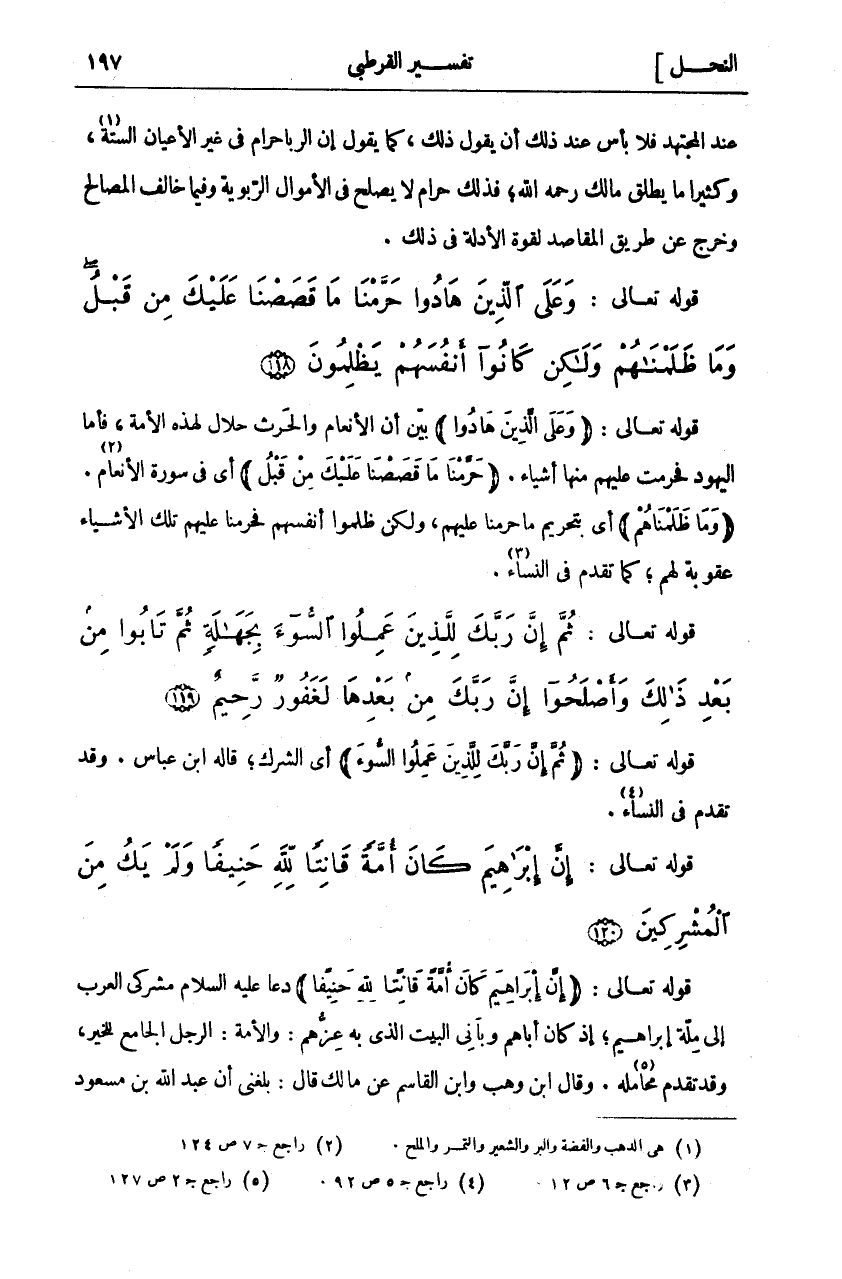 النحـــل ] تفســـير القرطبى ١٩٧
عند المجتهد فلا بأس عند ذلك أن يقول ذلك ، كما يقول إن الربا حرام فى غير الأعيان الستة(١) ،
وكثيرا ما يطلق مالك رحمه الله؛ فذلك حرام لا يصلح فى الأموال الرّبوية وفيما خالف المصالح
وخرج عن طريق المقاصد لقوة الأدلة فى ذلك .
قوله تعـالى : وَعَلَى ٱلَّذِينَ هَادُوا حَرَّمْنَا مَا قَصَصْنَا عَلَيْكَ مِن قَبْلُ ۖ
وَمَا ظَلَمْنَـٰهُمْ وَلَـٰكِن كَانُوٓا أَنفُسَهُمْ يَظْلِمُونَ ۝١١٨
قوله تعـالى : ﴿ وَعَلَى الَّذِينَ هَادُوا ﴾ بيّن أن الأنعام والحَرث حلال لهذه الأمة ، فأما
اليهود فحرمت عليهم منها أشياء . ﴿ حَرَّمْنَا مَا قَصَصْنَا عَلَيْكَ مِنْ قَبْلُ ﴾ أى فى سورة الأنعام(٢) .
﴿ وَمَا ظَلَمْنَاهُمْ ﴾ أى بتحريم ما حرمنا عليهم، ولكن ظلموا أنفسهم فحرمنا عليهم تلك الأشـياء
عقوبة لهم ؛ كما تقدم فى النساء(٣) .
قوله تعـالى : ثُمَّ إِنَّ رَبَّكَ لِلَّذِينَ عَمِلُوا ٱلسُّوٓءَ بِجَهَـٰلَةٍ ثُمَّ تَابُوا مِنۢ
بَعْدِ ذَٰلِكَ وَأَصْلَحُوٓا إِنَّ رَبَّكَ مِنۢ بَعْدِهَا لَغَفُورٌ رَّحِيمٌ ۝١١٩
قوله تعـالى : ﴿ ثُمَّ إِنَّ رَبَّكَ لِلَّذِينَ عَمِلُوا السُّوءَ ﴾ أى الشرك؛ قاله ابن عباس . وقد
تقدم فى النساء(٤) .
قوله تعـالى : إِنَّ إِبْرَٰهِيمَ كَانَ أُمَّةً قَانِتًا لِّلَّهِ حَنِيفًا وَلَمْ يَكُ مِنَ
ٱلْمُشْرِكِينَ ۝١٢٠
قوله تعـالى : ﴿ إِنَّ إِبْرَاهِيمَ كَانَ أُمَّةً قَانِتًا لِلَّهِ حَنِيفًا ﴾ دعا عليه السلام مشركى العرب
إلى مِلّة إبراهـيم؛ إذ كان أباهم وبانِى البيت الذى به عزُّهم ؛ والأمة : الرجل الجامع للخير،
وقد تقدم محامله(٥) . وقال ابن وهب وابن القاسم عن مالك قال : بلغنى أن عبد الله بن مسعود
(١) هى الذهب والفضة والبر والشعير والتمـر والملح . (٢) راجع جـ ٧ ص ١٢٤
(٣) راجع جـ ٦ ص ١٢ . (٤) راجع جـ ٥ ص ٩٢ . (٥) راجع جـ ٢ ص ١٢٧